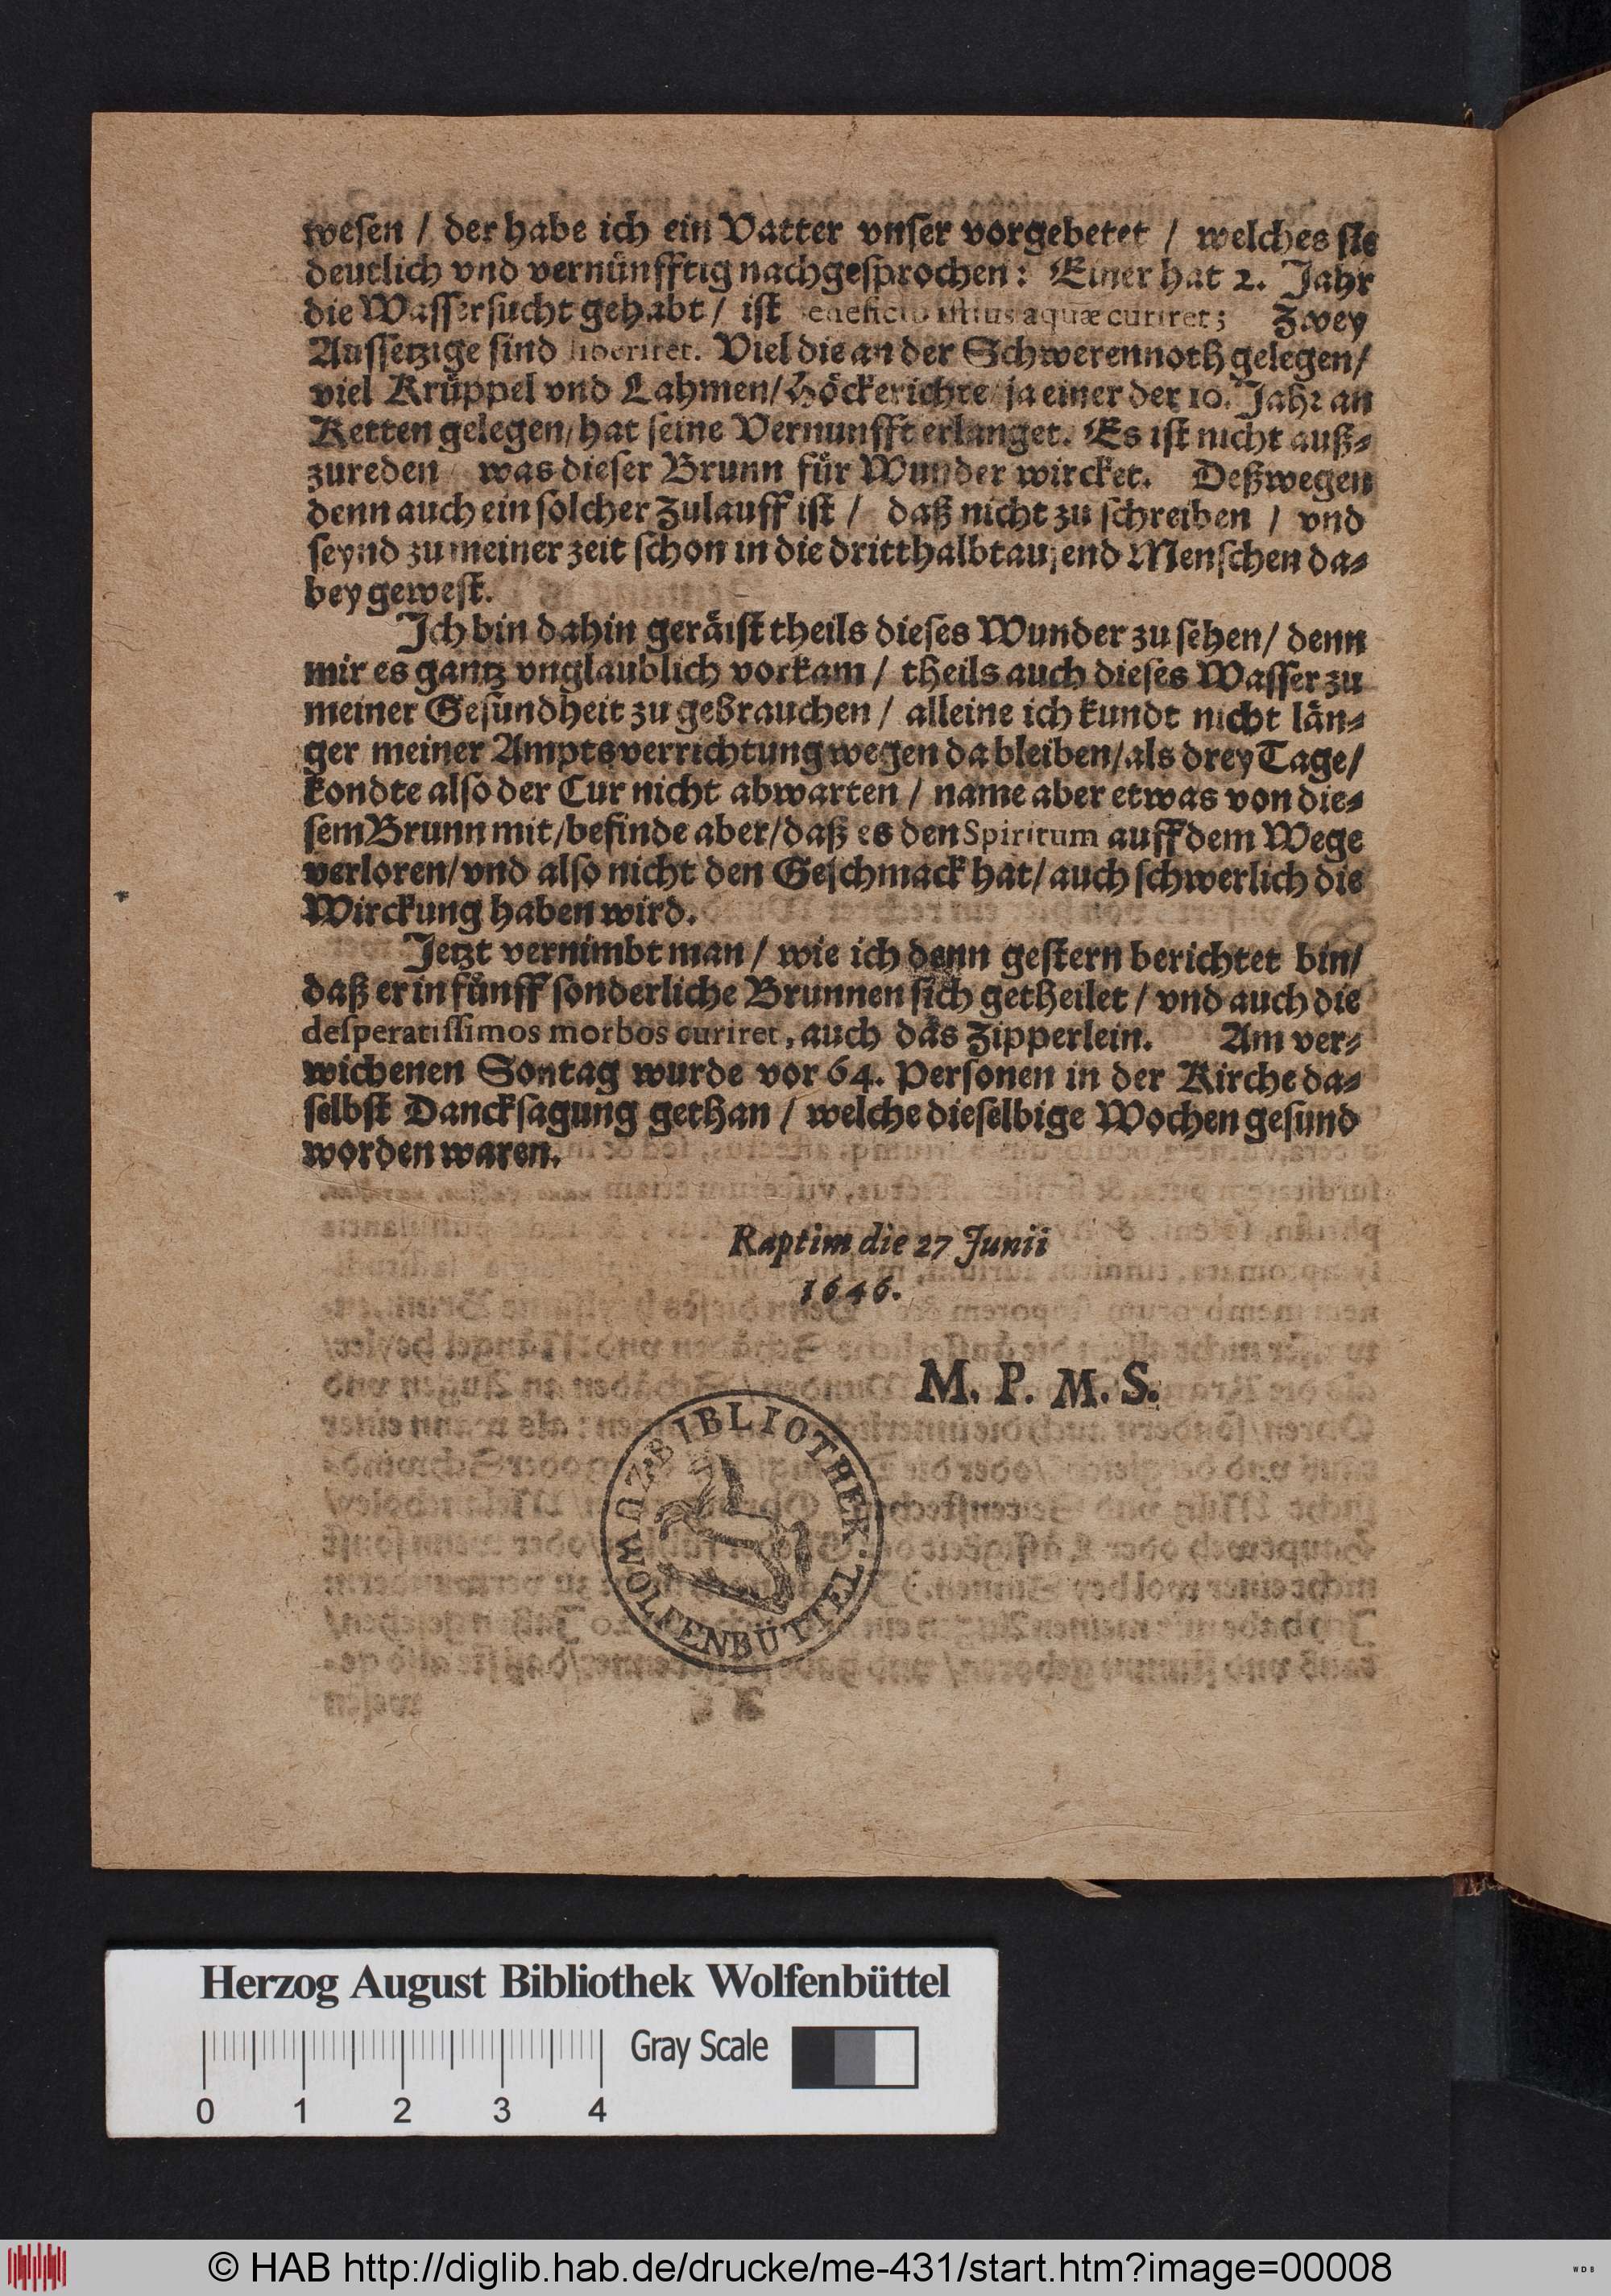 wesen / der habe ich ein Vatter vnser vorgebetet / welches sie
deutlich vnd vernünfftig nachgesprochen: Einer hat 2. Jahr
die Wassersucht gehabt / ist beneficio istius aquæ curiret; Zwey
Aussetzige sind liberiret. Viel die an der Schwerennoth gelegen /
viel Krüppel vnd Lahmen / Höckerichte / ja einer der 10. Jahr an
Ketten gelegen / hat seine Vernunfft erlanget. Es ist nicht auß-
zureden was dieser Brunn für Wunder wircket. Deßwegen
denn auch ein solcher Zulauff ist / daß nicht zu schreiben / vnd
seynd zu meiner zeit schon in die dritthalbtausend Menschen da-
bey gewest.
Ich bin dahin geräist theils dieses Wunder zu sehen / denn
mir es gantz vnglaublich vorkam / theils auch dieses Wasser zu
meiner Gesundheit zu gebrauchen / alleine ich kundt nicht län-
ger meiner Amptsverrichtung wegen da bleiben / als drey Tage /
kondte also der Cur nicht abwarten / name aber etwas von die-
sem Brunn mit / befinde aber / daß es den Spiritum auff dem Wege
verloren / vnd also nicht den Geschmack hat / auch schwerlich die
Wirckung haben wird.
Jetzt vernimbt man / wie ich denn gestern berichtet bin /
daß er in fünff sonderliche Brunnen sich getheilet / vnd auch die
desperatissimos morbos curiret, auch das Zipperlein. Am ver-
wichenen Sontag wurde vor 64. Personen in der Kirche da-
selbst Dancksagung gethan / welche dieselbige Wochen gesund
worden waren.
Raptim die 27 Junii
1646.
M. P. M. S.
BIBLIOTHEK
WOLFENBÜTTEL
Herzog August Bibliothek Wolfenbüttel
Gray Scale
0 1 2 3 4
© HAB http://diglib.hab.de/drucke/me-431/start.htm?image=00008
WDB